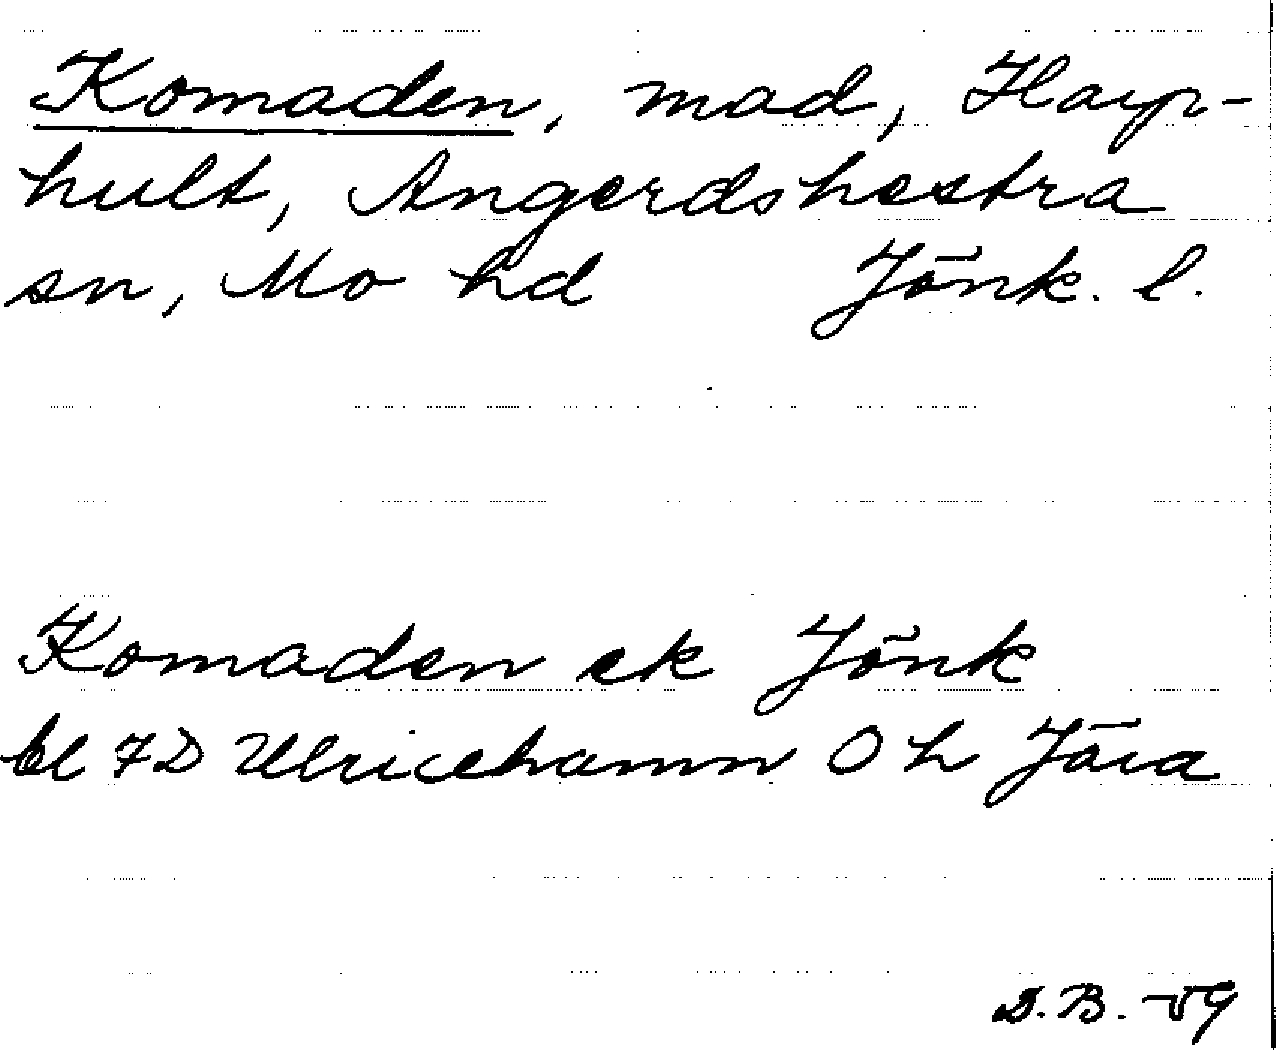 Komaden, mad, Harp-
hult, Angerdshestra
sn, Mo hd Jönk. l.
Komaden ek Jönk
bl 7D Ulricehamn O h Jära
S.B. -59